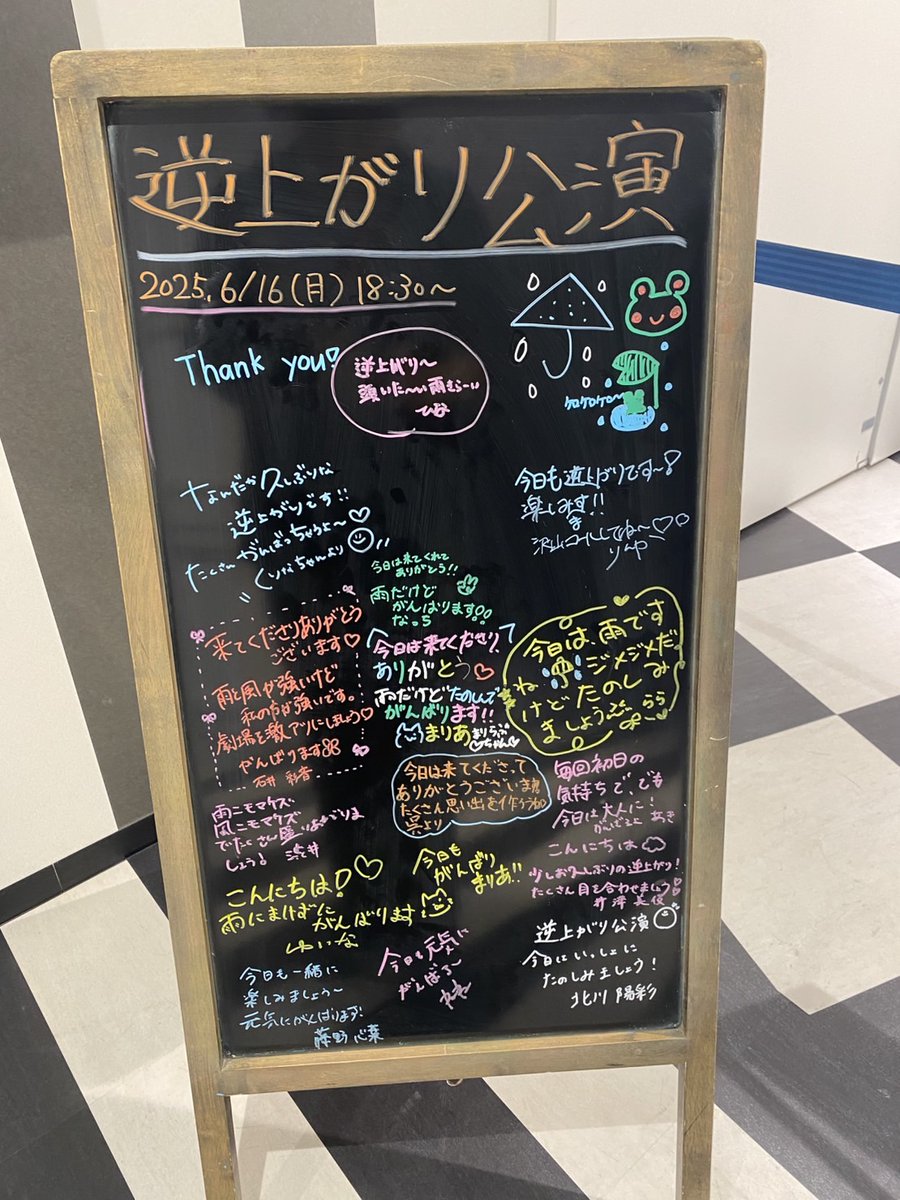 逆上がり公演
2025. 6/16(月) 18:30〜
Thank you!
逆上がり〜
頭いた〜い雨むらーい
ひな
ケロケロケロ〜
なんだか久しぶりな
逆上がりです!!
たくさんがんばっちゃうよ〜♡
くりなちゃんより
今日も逆上がりです〜!
楽しみます!!
沢山コールしてね〜♡
りんや
今日は来てくれて
ありがとう!!
雨だけど
がんばります!!
なっち
来てくださりありがとう
ございます♡
雨と風が強いけど
私の方が強いです。
劇場を激アツにしましょう♡
がんばります
石井 彩音
今日は来てくださり、
ありがとう♡
雨だけどたのしんで
がんばります!!
まりあ
まりあちゃん
今日は、雨です
ね ジメジメだ
けどたのしみ
ましょう
らら
今日は来てくださって
ありがとうございます
たくさん思い出を作ろうね
呉より
毎回初日の
気持ちで、でも
今日は大人に!
がんばるよ あき
雨ニモマケズ
風ニモマケズ
でたくさん盛り上がりま
しょう!
こんにちは
少しお久しぶりの逆上がり!
たくさん目を合わせましょう
こんにちは!♡
雨にまけずに
がんばります
ゆいな
今日も
がんばり
まりあ!!
今日も元気に
がんばる〜
逆上がり公演
今日はいっしょに
たのしみましょう!
北川 陽彩
今日も一緒に
楽しみましょう〜
元気にがんばります!
藤野 心葉